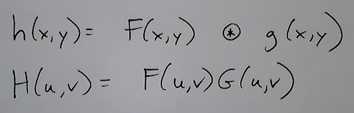 h(x,y) = F(x,y) ⊛ g(x,y)
H(u,v) = F(u,v)G(u,v)